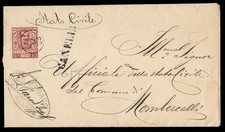 Stato Civile
CANELLI
All' Ill.mo Signor
Ufficiale dello stato civile
del Comune di
Mombercelli